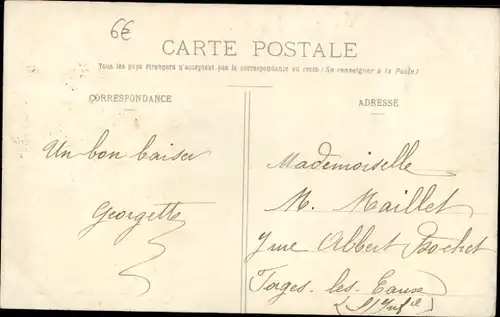 6€
CARTE POSTALE
Tous les pays étrangers n'acceptent pas la correspondance au recto (Se renseigner à la Poste)
CORRESPONDANCE
ADRESSE
Un bon baiser
Georgette
Mademoiselle
M. Maillet
rue Albert Bochet
Forges-les-Eaux
(S/Inf re)